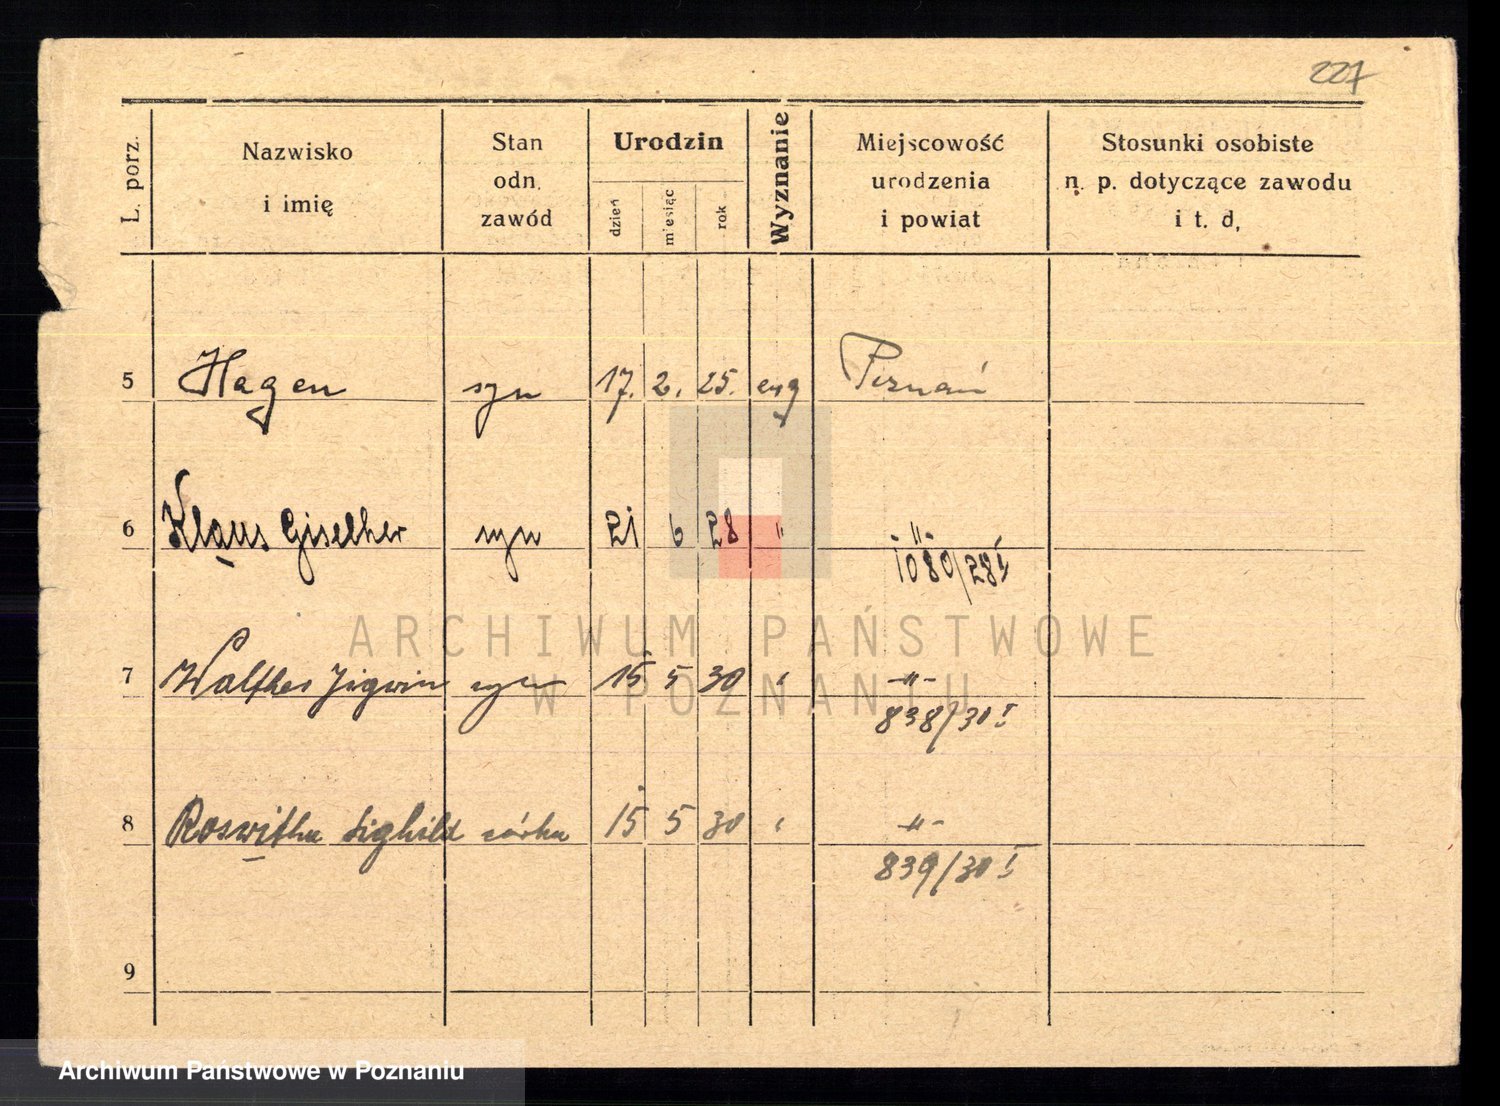 227
L. porz.
Nazwisko
i imię
Stan
odn.
zawód
Urodzin
dzień
miesiąc
rok
Wyznanie
Miejscowość
urodzenia
i powiat
Stosunki osobiste
n. p. dotyczące zawodu
i t. d.
5 Hagen syn 17. 2. 25. ewg Poznań
6 Klaus Giselher syn 21 6 28 " -"-
1080/28 I
7 Walther syn 15 5 30 " -"-
838/30 I
8 Roswitha Sighild córka 15 5 30 " -"-
839/30 I
9
ARCHIWUM PAŃSTWOWE
W POZNANIU
Archiwum Państwowe w Poznaniu